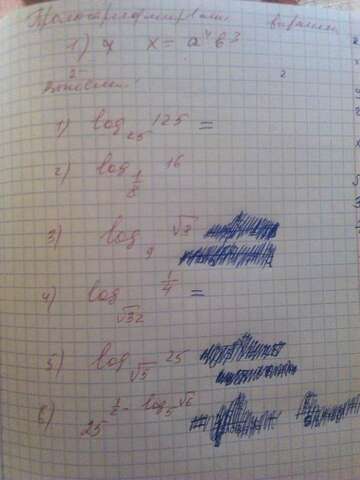 Прологарифмировать
1) x = a⁴ b³
2
Вычислить:
1) log₂₅ 125 =
2) log_{1/8} 16
3) log₉ √3
4) log_{√32} 1/4 =
5) log_{√5} 25
6) 25^{1/2 - log₅ √6}